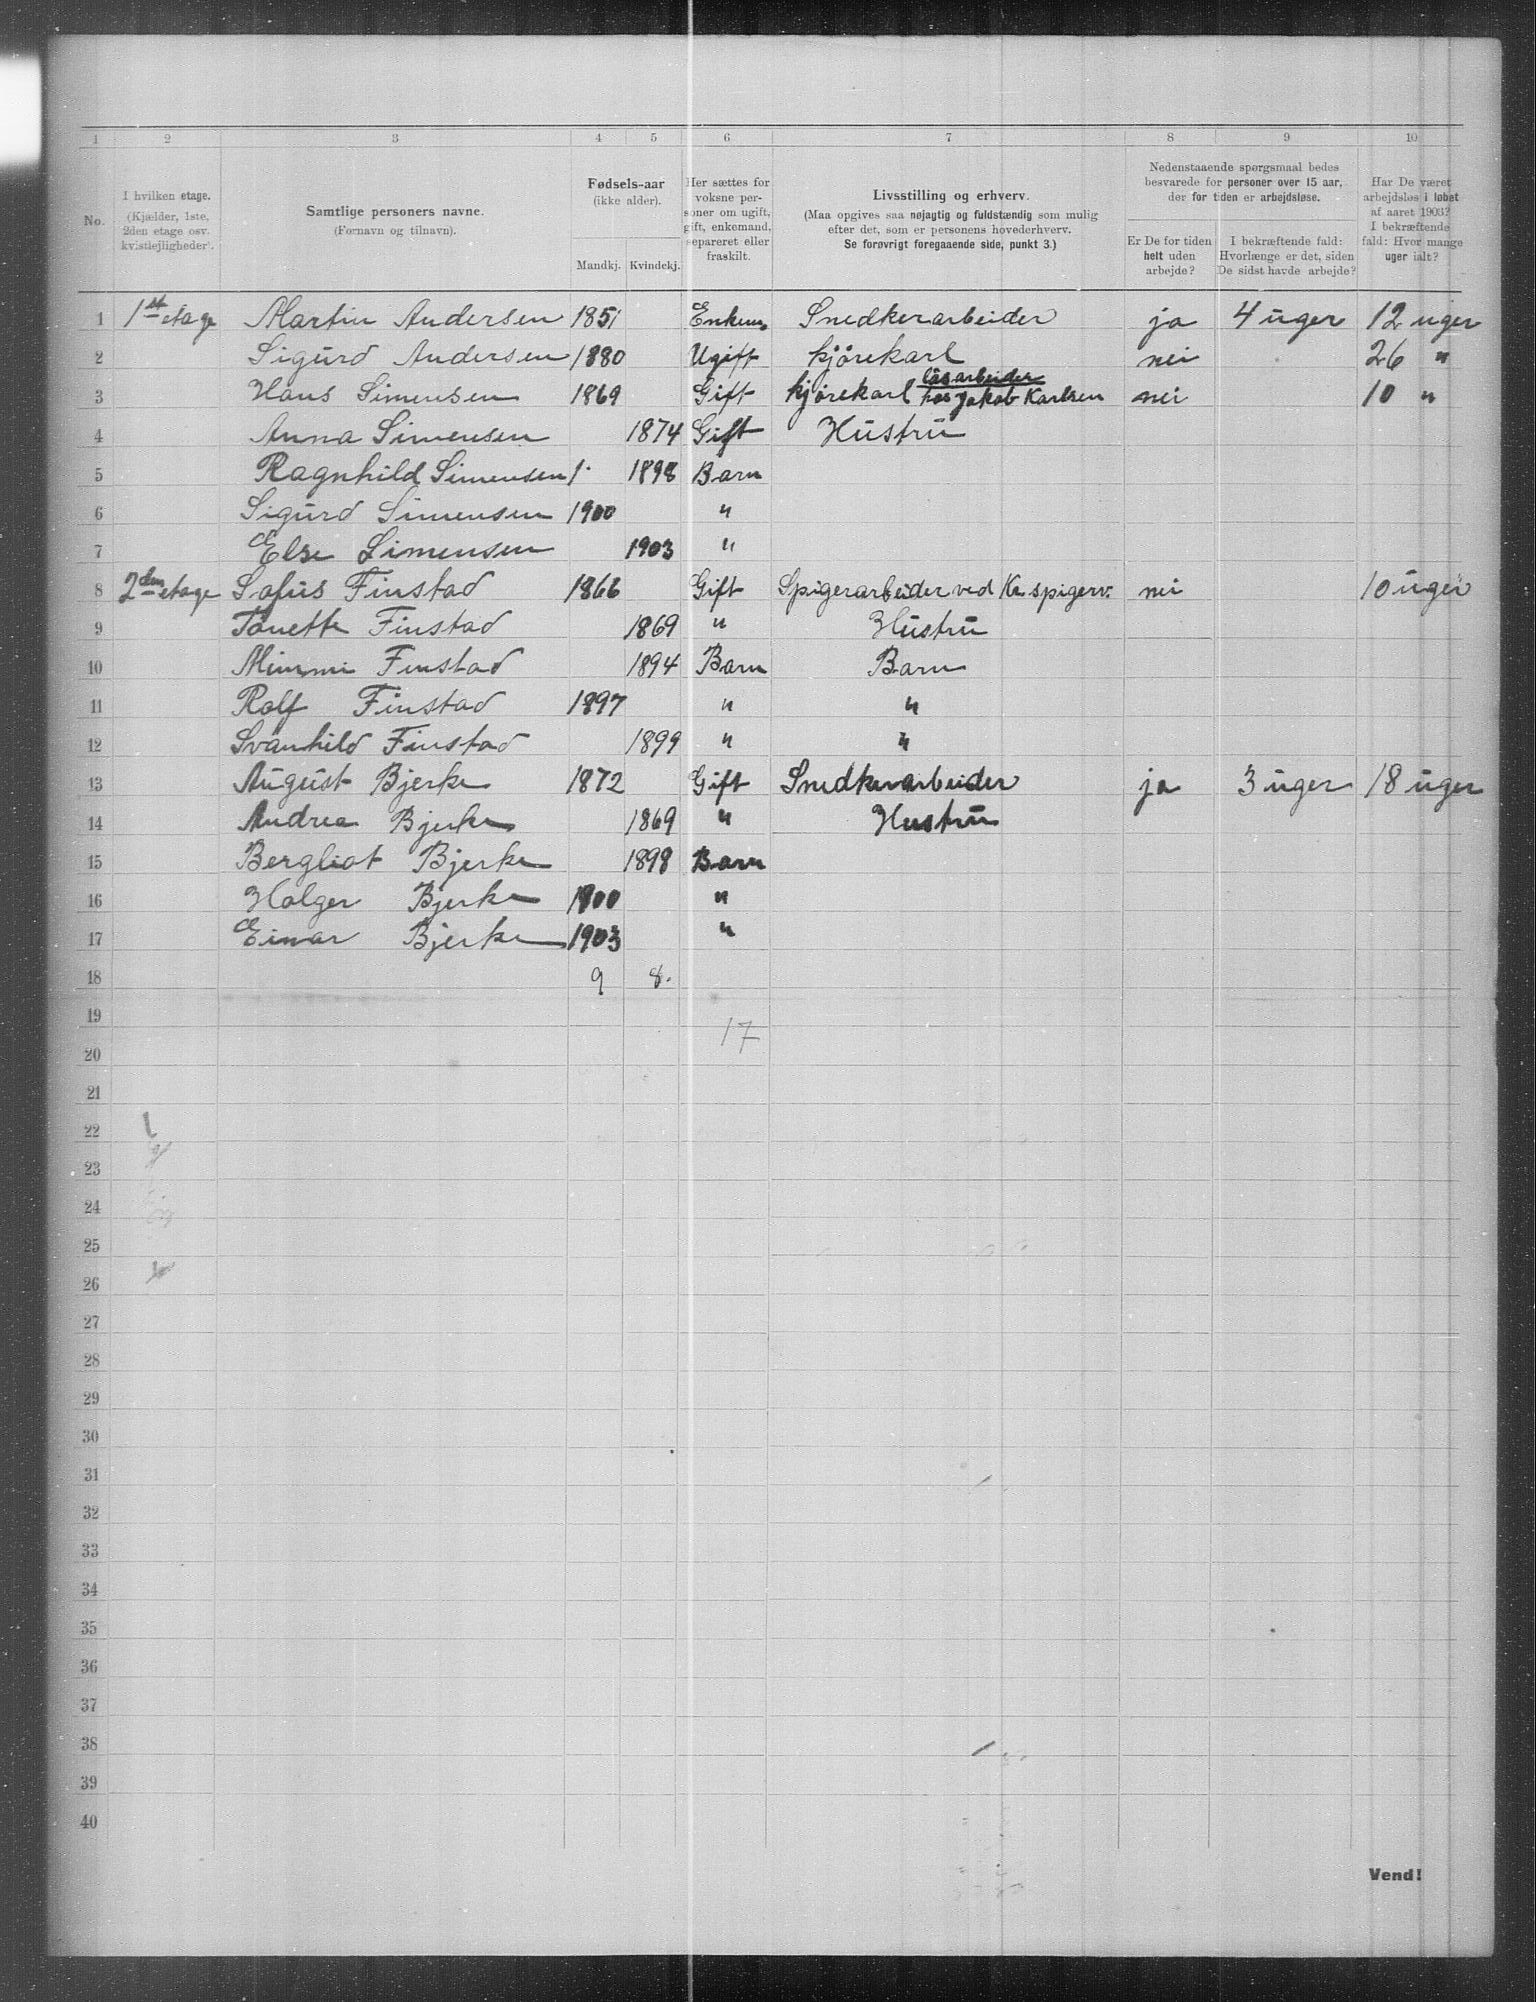 1 2 3 4 5 6 7 8 9 10
No.
I hvilken etage.
(Kjælder, 1ste,
2den etage osv.
kvistlejligheder).
Samtlige personers navne.
(Fornavn og tilnavn).
Fødsels-aar
(ikke alder).
Mandkj. Kvindekj.
Her sættes for
voksne per-
soner om ugift,
gift, enkemand,
separeret eller
fraskilt.
Livsstilling og erhverv.
(Maa opgives saa nøjagtig og fuldstændig som mulig
efter det, som er personens hovederhverv.
Se forøvrigt foregaaende side, punkt 3.)
Nedenstaaende spørgsmaal bedes
besvarede for personer over 15 aar,
der for tiden er arbejdsløse.
Er De for tiden
helt uden
arbejde?
I bekræftende fald:
Hvorlænge er det, siden
De sidst havde arbejde?
Har De været
arbejdsløs i løbet
af aaret 1903?
I bekræftende
fald: Hvor mange
uger ialt?
1 1st etage Martin Andersen 1851 Enkem. Snedkerarbeider ja 4 uger 12 uger
2 Sigurd Andersen 1880 Ugift kjørekarl nei 26 "
løsarbeider
3 Hans Simensen 1869 Gift kjørekarl hos Jakob Karlsen nei 10 "
4 Anna Simensen 1874 Gift Hustru
5 Ragnhild Simensen 1· 1898 Barn
6 Sigurd Simensen 1900 "
7 Else Simensen 1903 "
8 2den etage Sofus Finstad 1866 Gift Spigerarbeider ved Kr. spigerv. nei 10 uger
9 Tonette Finstad 1869 " Hustru
10 Mimmi Finstad 1894 Barn Barn
11 Rolf Finstad 1897 " "
12 Svanhild Finstad 1899 " "
13 August Bjerke 1872 Gift Snedkerarbeider ja 3 uger 18 uger
14 Andrea Bjerke 1869 " Hustru
15 Bergliot Bjerke 1898 Barn
16 Holger Bjerke 1900 "
17 Einar Bjerke 1903 "
18 9 8.
19
17
20
21
22
23
24
25
26
27
28
29
30
31
32
33
34
35
36
37
38
39
40
Vend!